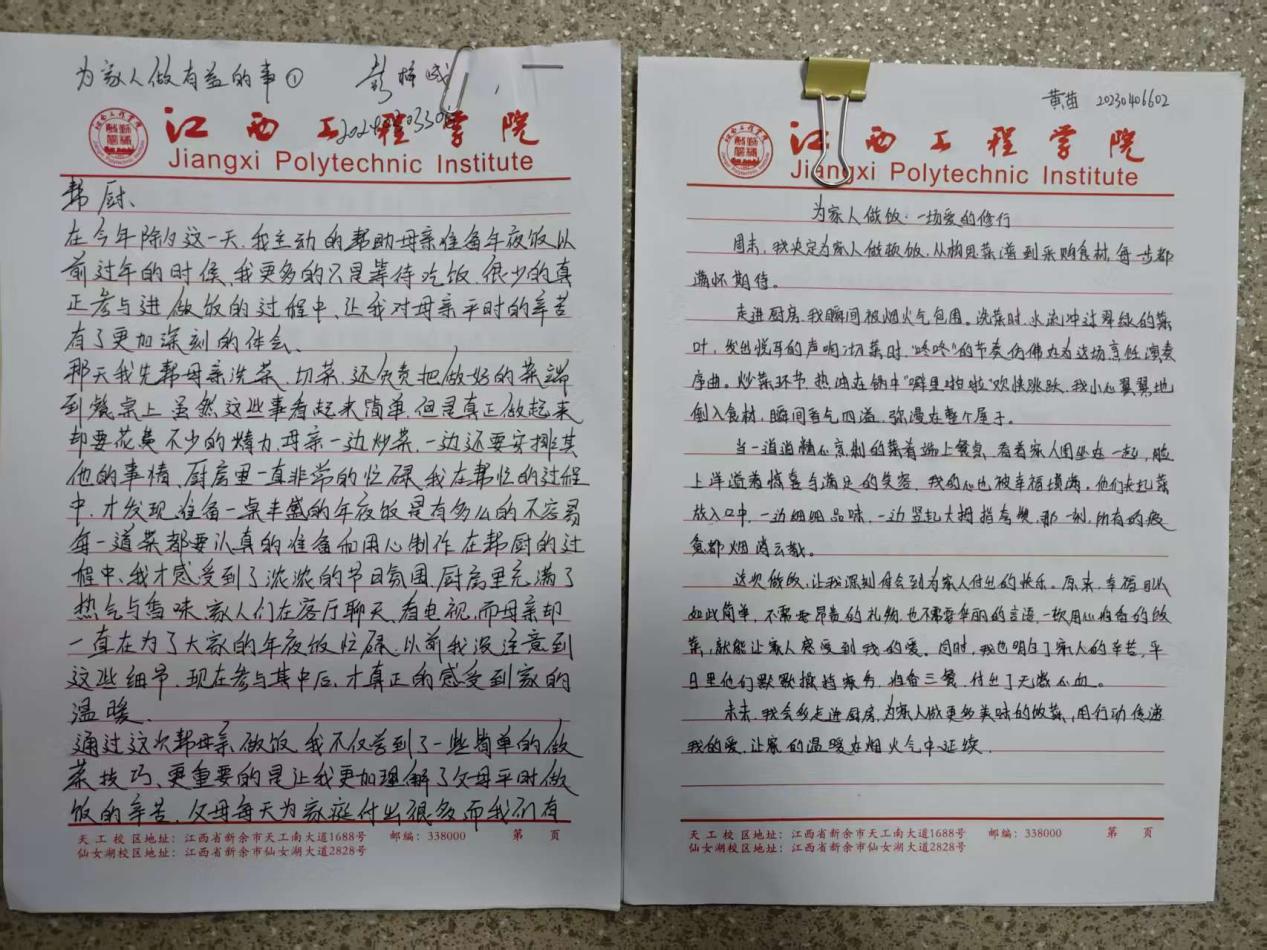 为家人做有益的事①
江西工程学院
Jiangxi Polytechnic Institute
帮厨、
在今年除夕这一天,我主动的帮助母亲准备年夜饭以
前过年的时候,我更多的只是等待吃饭,很少的真
正参与进做饭的过程中,让我对母亲平时的辛苦
有了更加深刻的体会、
那天我先帮母亲洗菜、切菜,还负责把做好的菜端
到餐桌上虽然这些事看起来简单,但是真正做起来
却要花费不少的精力,母亲一边炒菜,一边还要安排其
他的事情、厨房里一直非常的忙碌,我在帮忙的过程
中,才发现准备一桌丰盛的年夜饭是有多么的不容易
每一道菜都要认真的准备和用心制作在帮厨的过
程中,我才感受到了浓浓的节日氛围,厨房里充满了
热气与香味,家人们在客厅聊天,看电视,而母亲却
一直在为了大家的年夜饭忙碌,以前我没注意到
这些细节,现在参与其中后,才真正的感受到家的
温暖、
通过这次帮母亲做饭,我不仅学到了一些简单的做
菜技巧、更重要的是让我更加理解了父母平时做
饭的辛苦、父母每天为家庭付出很多而我们有
天工校区地址:江西省新余市天工南大道1688号 邮编:338000 第 页
仙女湖校区地址:江西省新余市仙女湖大道2828号
黄苗 20230406602
江西工程学院
Jiangxi Polytechnic Institute
为家人做饭:一场爱的修行
周末,我决定为家人做顿饭,从构思菜谱到采购食材,每一步都
满怀期待。
走进厨房,我瞬间被烟火气包围。洗菜时,水流冲过翠绿的菜
叶,发出悦耳的声响;切菜时,"咚咚"的节奏仿佛在为这场烹饪演奏
序曲。炒菜环节,热油在锅中"噼里啪啦"欢快跳跃,我小心翼翼地
倒入食材,瞬间香气四溢,弥漫在整个屋子。
当一道道精心烹制的菜肴端上餐桌,看着家人围坐在一起,脸
上洋溢着惊喜与满足的笑容,我的心也被幸福填满。他们夹起菜
放入口中,一边细细品味,一边竖起大拇指夸赞,那一刻,所有的疲
惫都烟消云散。
这次做饭,让我深刻体会到为家人付出的快乐。原来,幸福可以
如此简单,不需要昂贵的礼物,也不需要华丽的言语,一顿用心准备的饭
菜,就能让家人感受到我的爱。同时,我也明白了家人的辛苦,平
日里他们默默操持家务,准备三餐,付出了无数心血。
未来,我会多走进厨房,为家人做更多美味的饭菜,用行动传递
我的爱,让家的温暖在烟火气中延续.
天工校区地址:江西省新余市天工南大道1688号 邮编:338000 第 页
仙女湖校区地址:江西省新余市仙女湖大道2828号